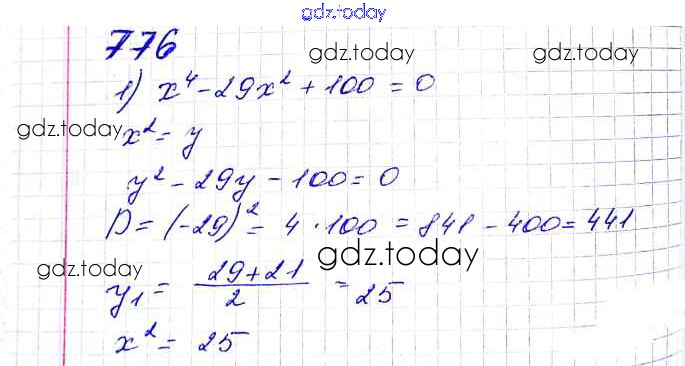 gdz.today
776
gdz.today gdz.today
1) x⁴ - 29x² + 100 = 0
gdz.today
x² = y
y² - 29y - 100 = 0
D = (-29)² - 4 · 100 = 841 - 400 = 441
gdz.today gdz.today
y₁ = (29+21)/2 = 25
x² = 25